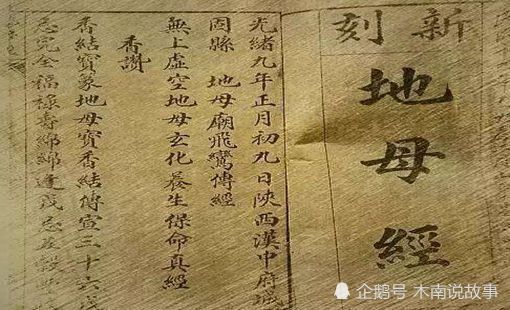 新刻
地母經
光緒九年正月初九日陝西漢中府城
固縣 地母廟飛鸞傳經
無上虛空地母玄化養生保命真經
香讚
香結寶篆地母寶香結傳宣三十六戊
忌完全福祿壽綿綿逢戊忌
企鹅号 木南说故事